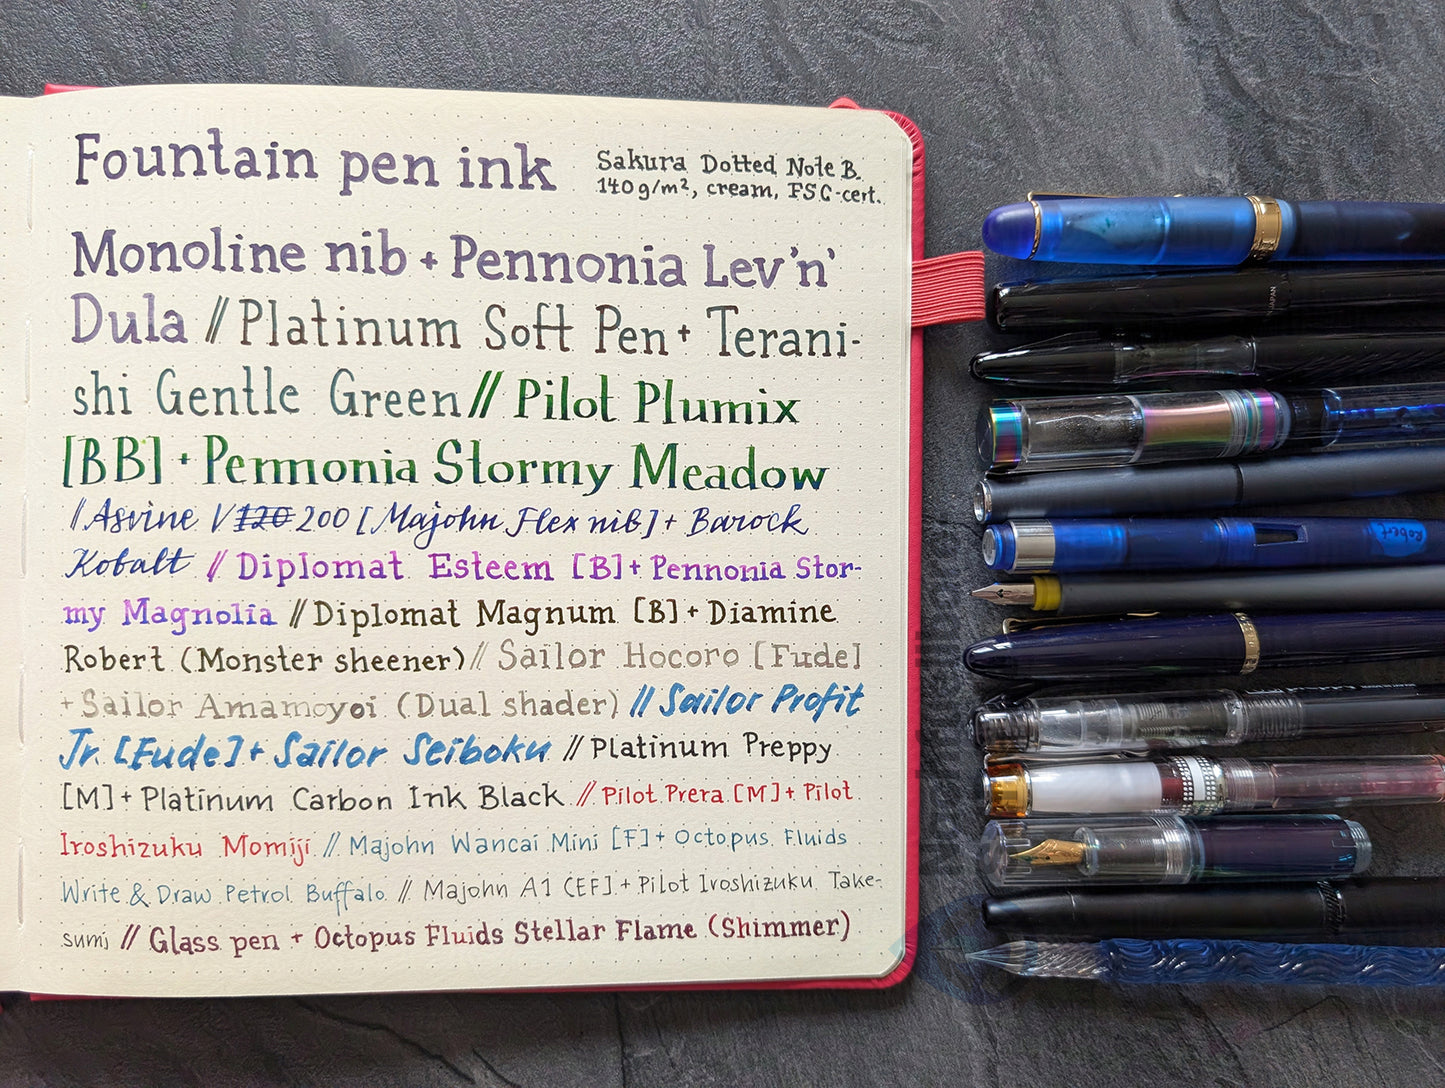 Fountain pen ink
Sakura Dotted Note B.
140g/m², cream, FSC-cert.
Monoline nib + Pennonia Lev'n'
Dula // Platinum Soft Pen + Terani-
shi Gentle Green // Pilot Plumix
[BB] + Pennonia Stormy Meadow
// Asvine V120 200 [Majohn Flex nib] + Barock
Kobalt // Diplomat Esteem [B] + Pennonia Stor-
my Magnolia // Diplomat Magnum [B] + Diamine
Robert (Monster sheener) // Sailor Hocoro [Fude]
+ Sailor Amamoyoi (Dual shader) // Sailor Profit
Jr. [Fude] + Sailor Seiboku // Platinum Preppy
[M] + Platinum Carbon Ink Black // Pilot Prera [M] + Pilot
Iroshizuku Momiji // Majohn Wancai Mini [F] + Octopus Fluids
Write & Draw Petrol Buffalo // Majohn A1 (EF] + Pilot Iroshizuku Take-
sumi // Glass pen + Octopus Fluids Stellar Flame (Shimmer)
JAPAN
Robert